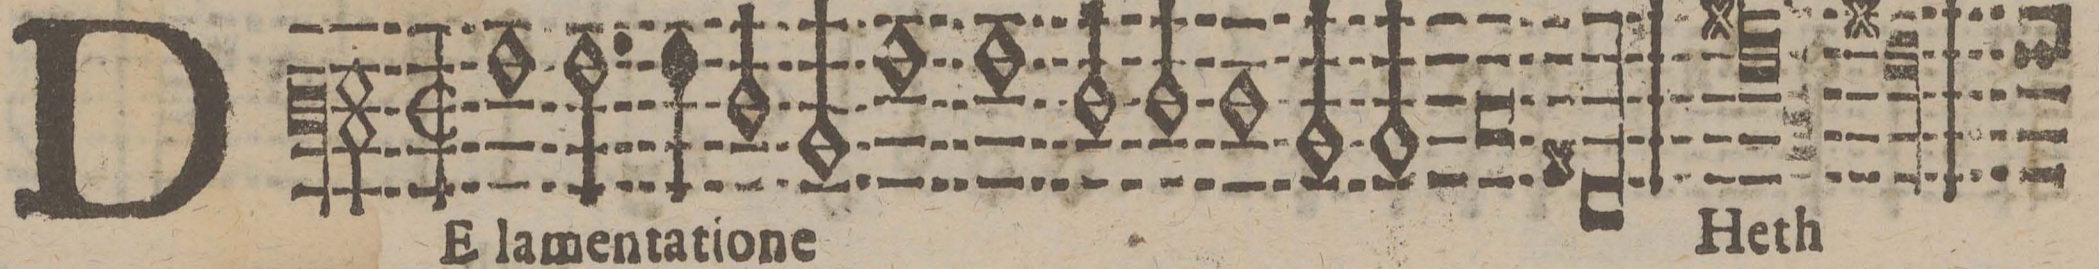 DE lamentatione Heth